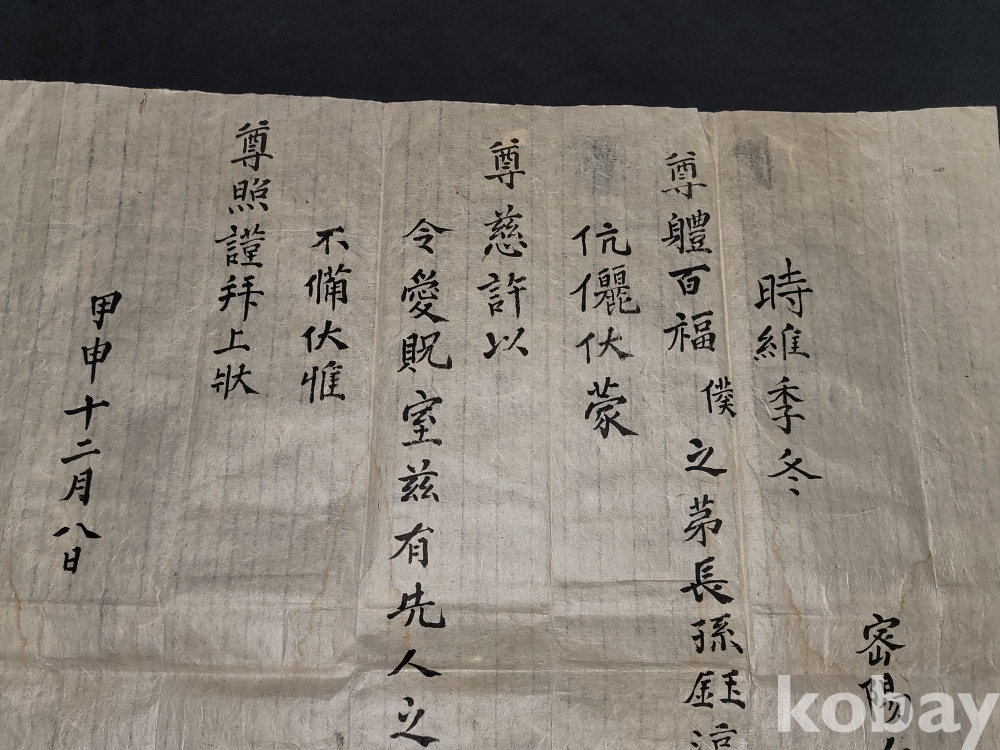 密陽
時維季冬
尊體百福僕之苐長孫鈺
伉儷伏蒙
尊慈許以
令愛貺室茲有先人之
不備伏惟
尊照謹拜上狀
甲申十二月八日
kobay